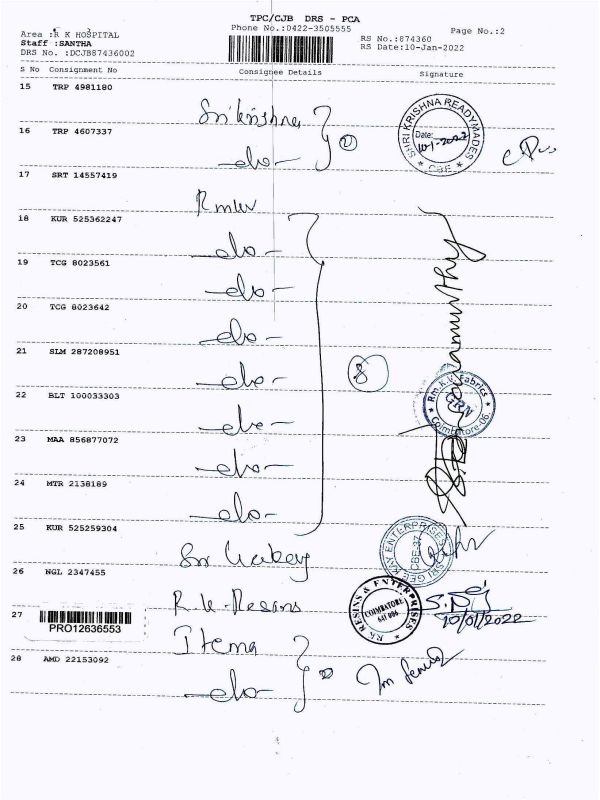 TPC/CJB DRS - PCA
Phone No.:0422-3505555
Page No.:2
Area :R K HOSPITAL
Staff :SANTHA
DRS No. :DCJB87436002
RS No.:874360
RS Date:10-Jan-2022
S No Consignment No Consignee Details Signature
15 TRP 4981180
Srikrishna
SHRI KRISHNA READYMADES
Date:
10-1-2022
* CBE *
16 TRP 4607337
-do-
2
17 SRT 14557419
Rmkv
18 KUR 525362247
-do-
19 TCG 8023561
-do-
20 TCG 8023642
-do-
21 SLM 287208951
-do-
8
22 BLT 100033303
-do-
Rm.K.V. Fabrics
GRN
Coimbatore-06.
23 MAA 856877072
-do-
24 MTR 2138189
-do-
25 KUR 525259304
Sri
SRI GEE KAY ENTERPRISES
CBE-37
26 NGL 2347455
R.K. Resins
RK RESINS & ENTERPRISES
COIMBATORE
641 006
10/01/2022
27
PRO12636553
Itema
28 AMD 22153092
-do-
2